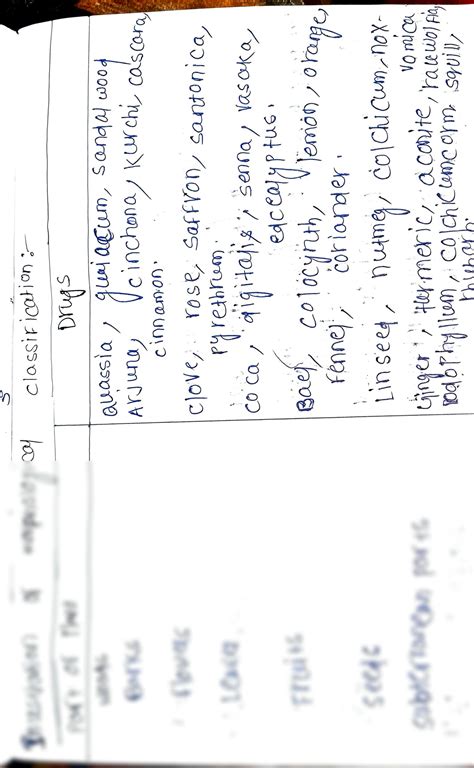 of morphological classification :-
Part of Plant Drugs
quassia, guaiacum, sandal wood
Barks Arjuna, cinchona, kurchi, cascara,
cinnamon.
Flowers clove, rose, saffron, santonica,
pyrethrum.
Leaves coca, digitalis, senna, vasaka,
edccalyptus.
Fruits Bael, colocynth, lemon, orange,
Fennel, coriander.
Seeds Linseed, nutmeg, colchicum, nox-
vomica
subterranean parts Ginger, turmeric, aconite, rauwolfia,
podophyllum, colchicumcorm, squill,